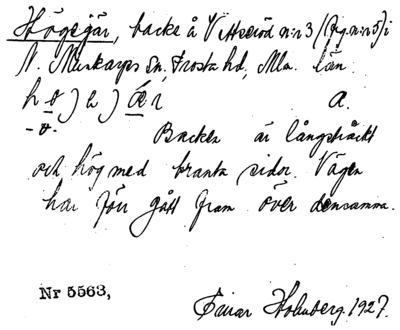 Högegär, backe å Vittseröd n:r 3 (fig. n:r 5) i
N. Munkarps sn, Frosta hd, Mlm. län.
A.
Backen är långsträckt
och hög med branta sidor. Vägen
har förr gått fram över densamma.
Nr 5563,
Einar Holmberg. 1927.